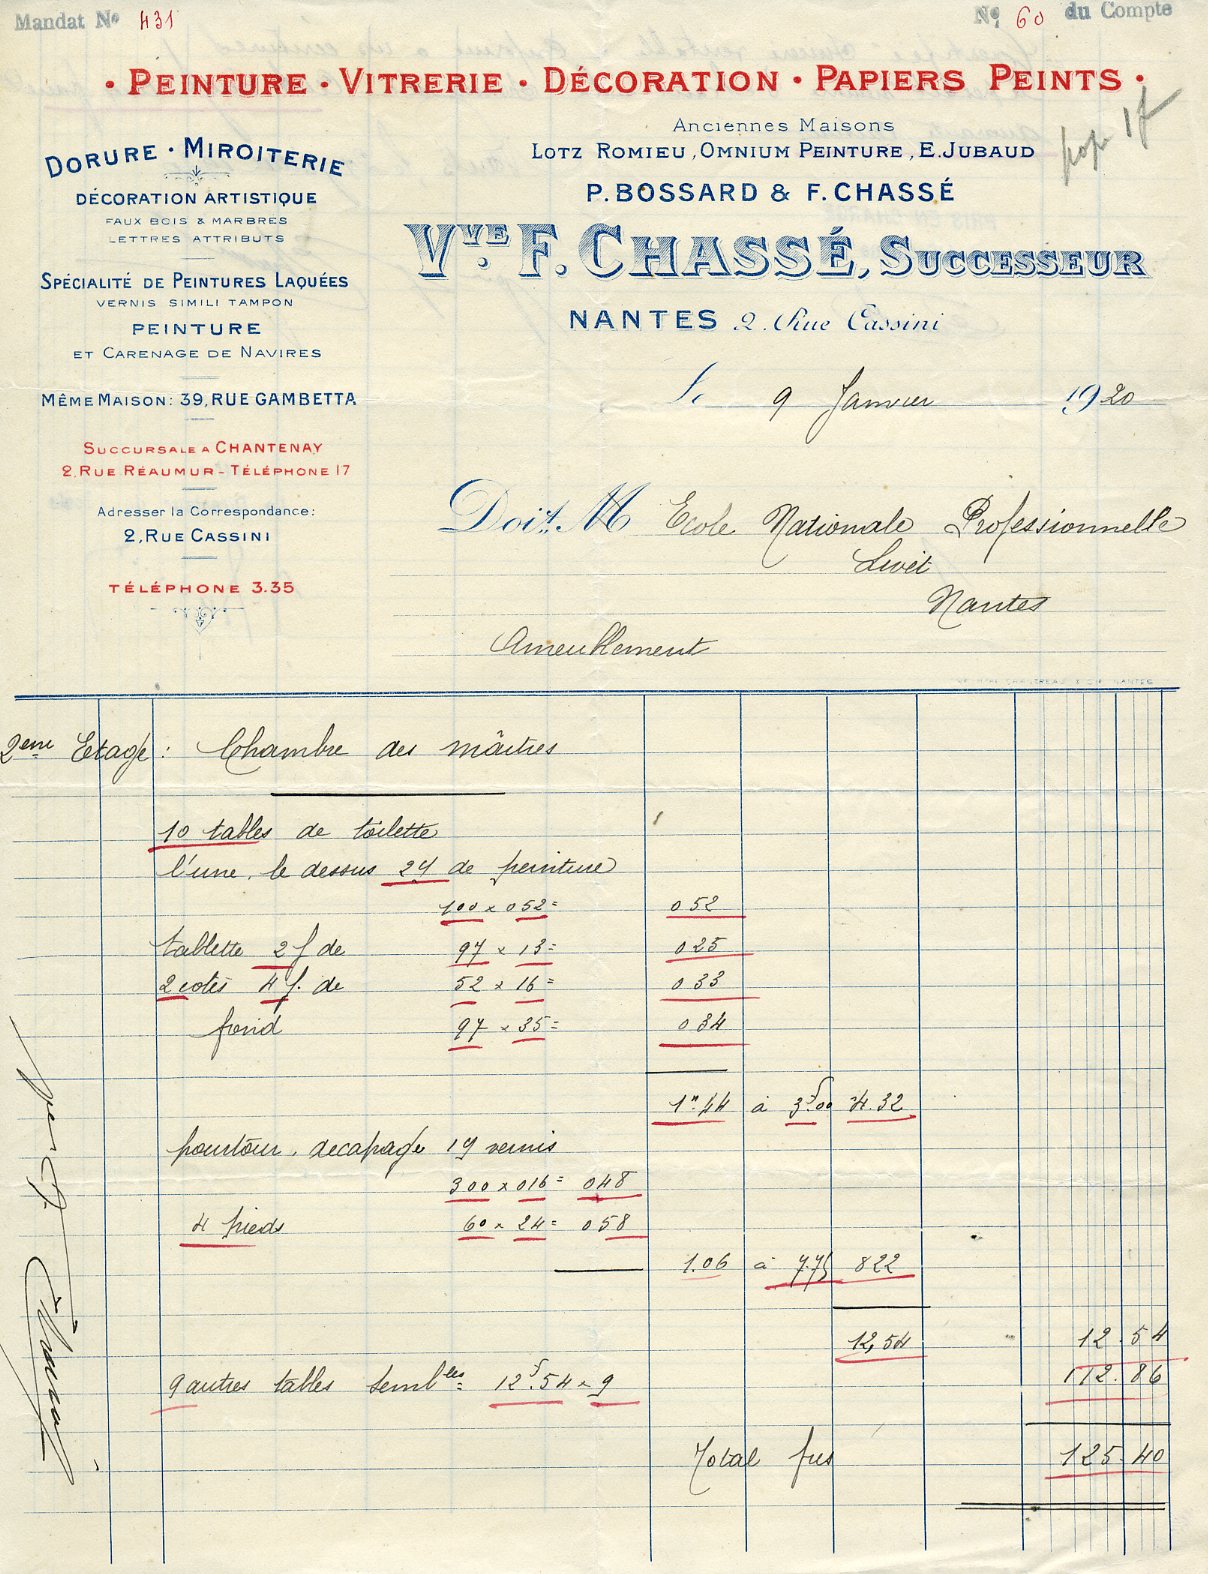 Mandat No 431
No 60 du Compte
· PEINTURE · VITRERIE · DÉCORATION · PAPIERS PEINTS ·
DORURE · MIROITERIE
DÉCORATION ARTISTIQUE
FAUX BOIS & MARBRES
LETTRES ATTRIBUTS
SPÉCIALITÉ DE PEINTURES LAQUÉES
VERNIS SIMILI TAMPON
PEINTURE
ET CARENAGE DE NAVIRES
MÊME MAISON: 39, RUE GAMBETTA
SUCCURSALE A CHANTENAY
2, RUE RÉAUMUR - TÉLÉPHONE 17
Adresser la Correspondance:
2, RUE CASSINI
TÉLÉPHONE 3.35
Anciennes Maisons
LOTZ ROMIEU, OMNIUM PEINTURE, E. JUBAUD
P. BOSSARD & F. CHASSÉ
VVE F. CHASSÉ, SUCCESSEUR
NANTES 2. Rue Cassini
le 9 Janvier 1920
Doit M Ecole Nationale Professionnelle
Livet
Nantes
Ameublement
2eme Etage : Chambre des maîtres
10 tables de toilette
l'une, le dessus 2f de peinture
100 x 052 = 052
tablette 2f de 97 x 13 = 025
2 cotés 4f. de 52 x 16 = 033
fond 97 x 35 = 034
1m.44 à 3f.00 4.32
pourtour, decapage 1f vernis
300 x 016 = 048
4 pieds 60 x 24 = 058
1.06 à 7.75 822
12,54 12.54
9 autres tables sembles 12f.54 x 9 112.86
Total frs 125.40